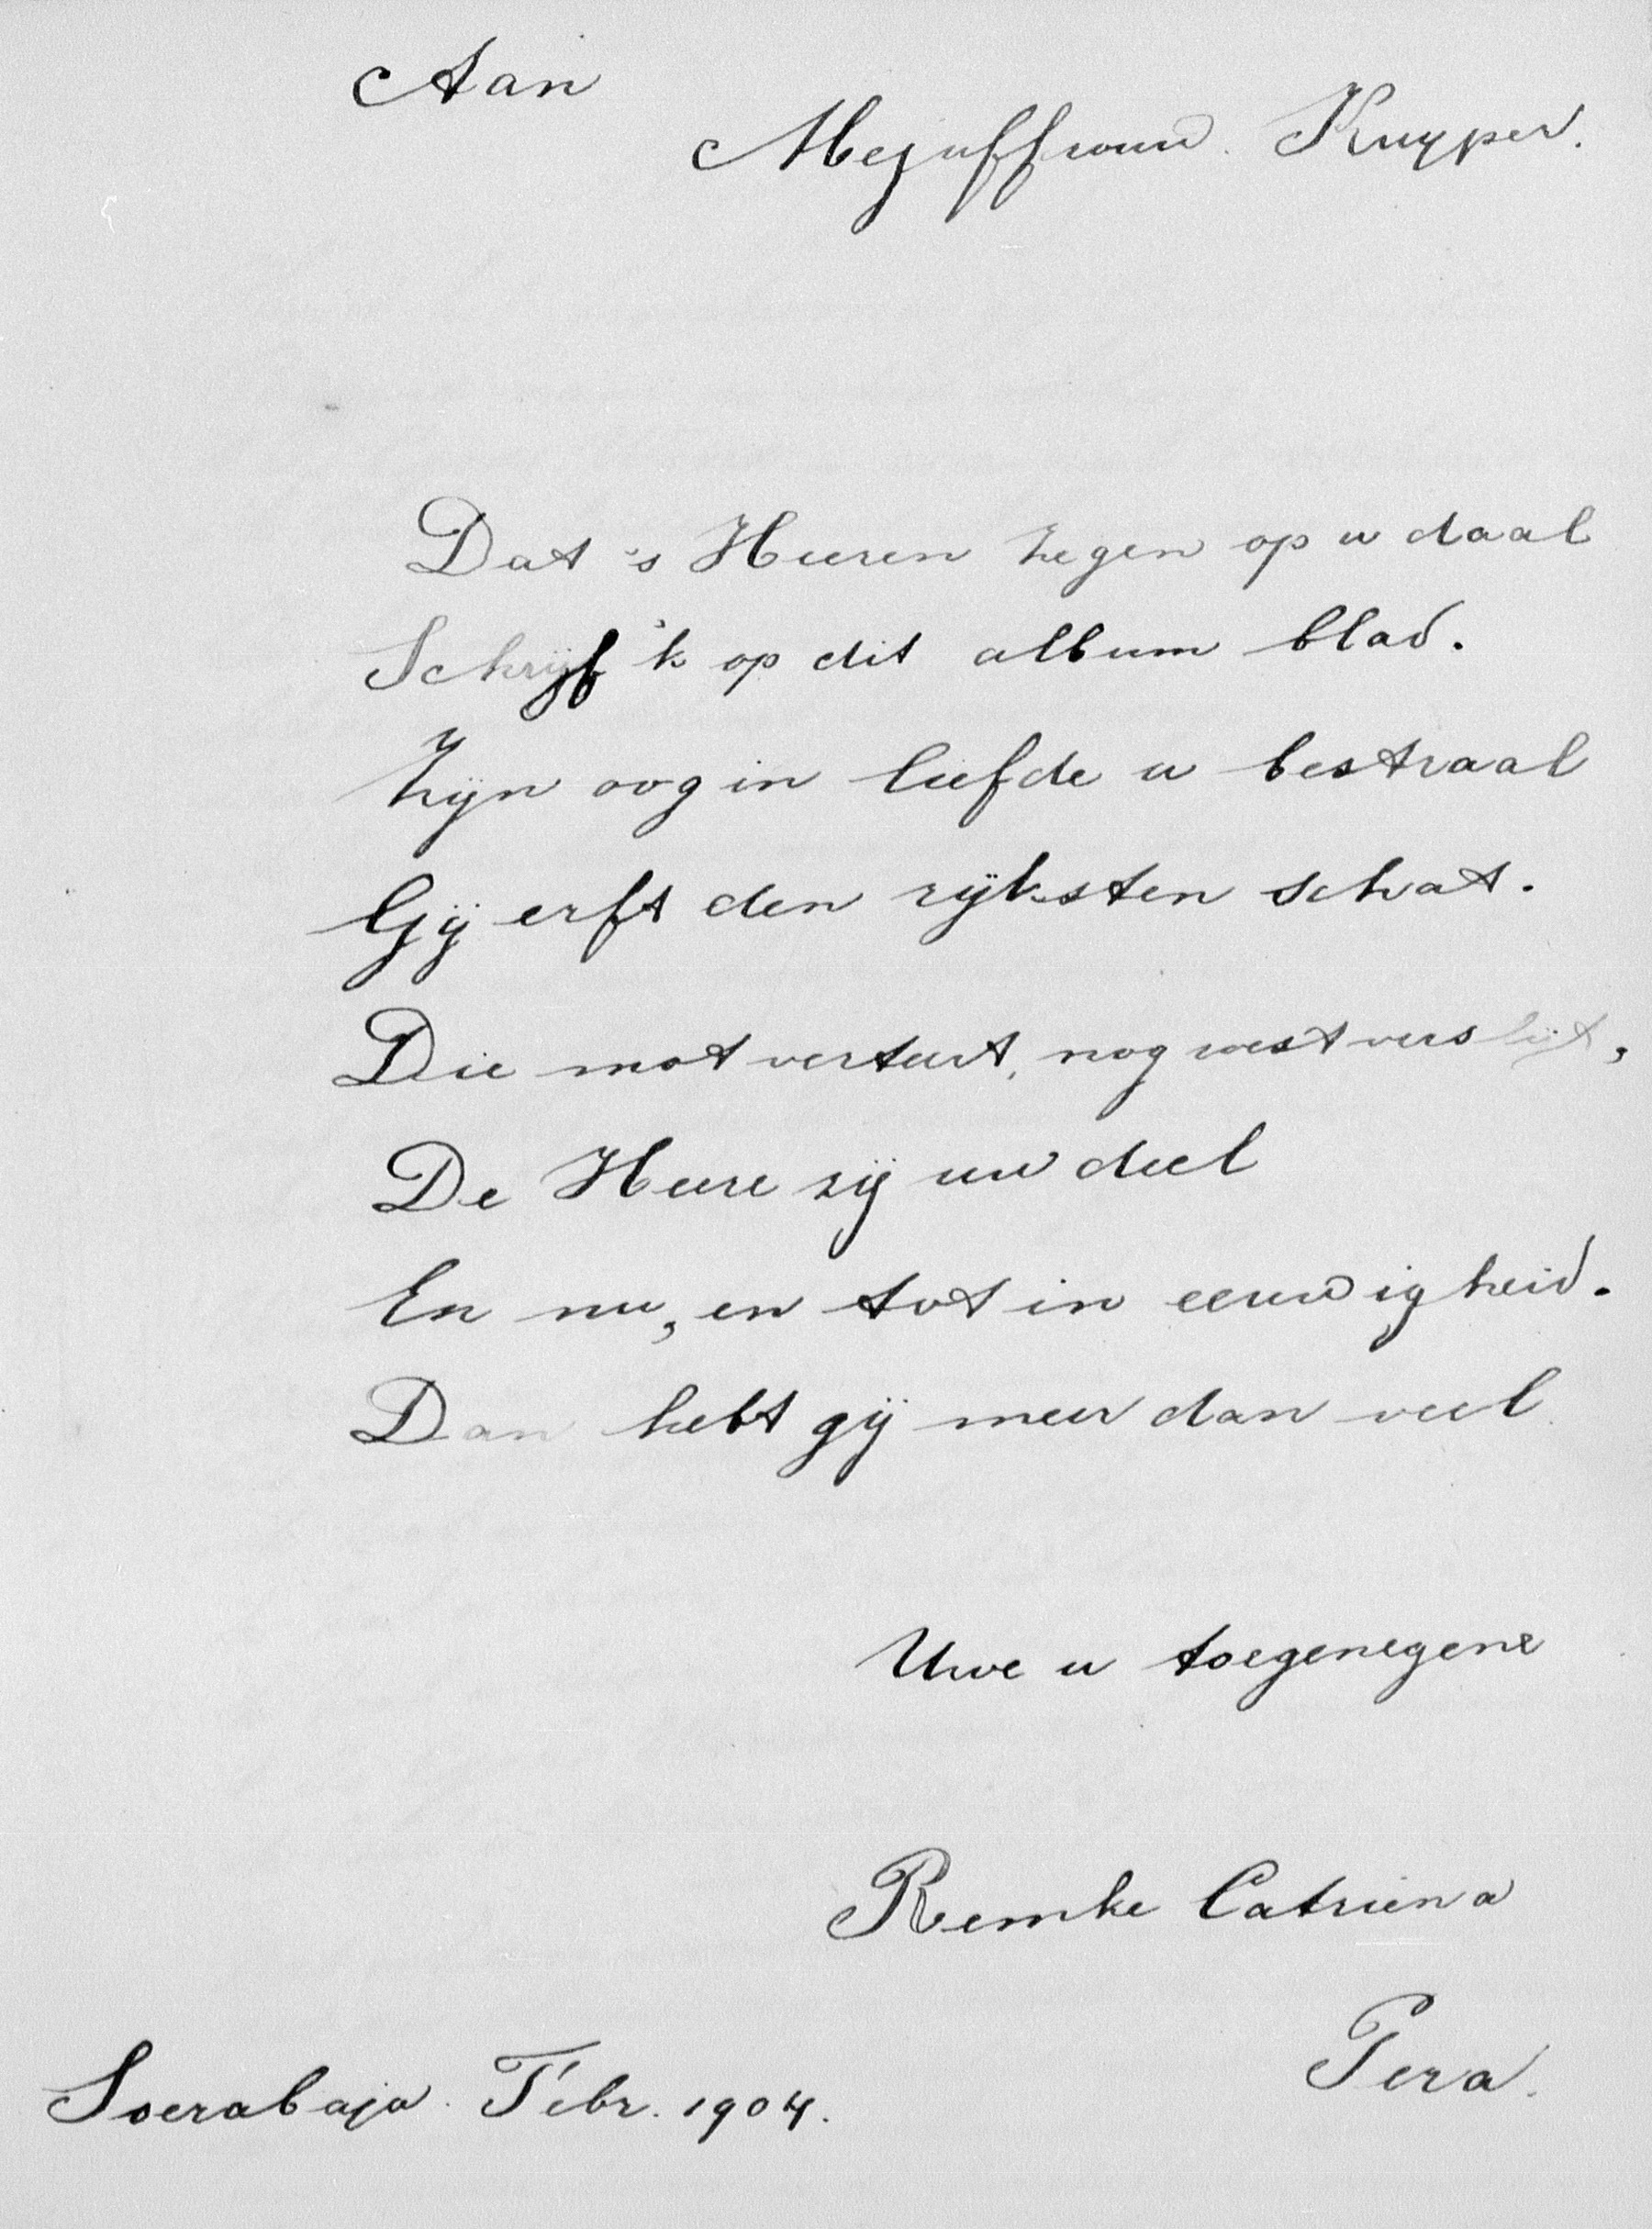 Aan
Mejuffrouw. Kuyper.
Dat 's Heeren zegen op u daal
Schrijf 'k op dit album blad.
Zijn oog in liefde u bestraal
Gij erft den rijksten schat.
Die mot verteert, nog roest verslijt,
De Heere zij uw deel
En nu, en tot in eeuwigheid.
Dan hebt gij meer dan veel.
Uwe u toegenegene
Remke Catriena
Pera.
Soerabaja. Febr. 1904.